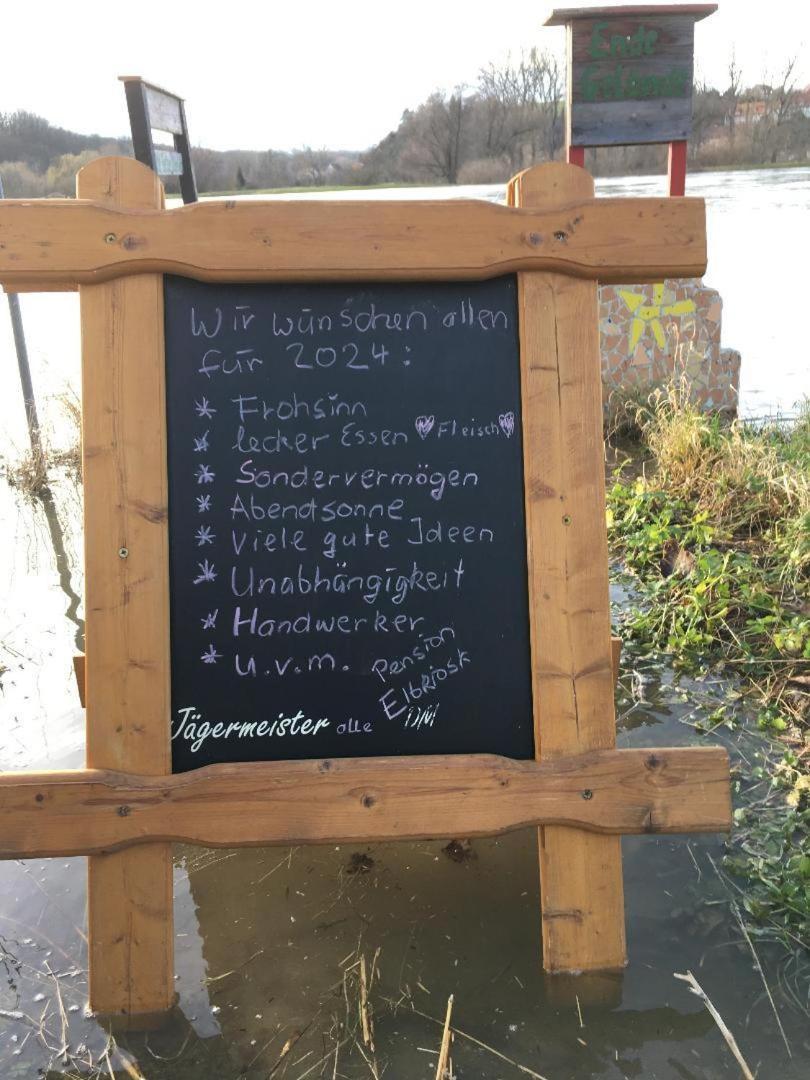 Ende
Gelände
Wir wünschen allen
für 2024:
* Frohsinn
* lecker Essen ♡Fleisch♡
* Sondervermögen
* Abendsonne
* Viele gute Ideen
* Unabhängigkeit
* Handwerker
* u.v.m.
Pension
Elbkiosk
DM
Jägermeister alle